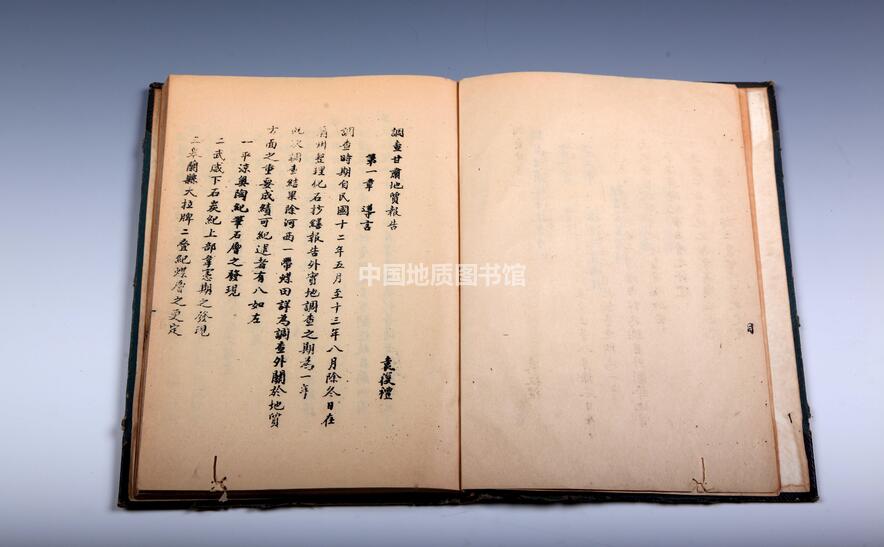 調查甘肅地質報告
袁復禮
第一章 導言
調查時期自民國十二年五月至十三年八月除冬日在
蘭州整理化石抄繕報告外實地調查之期為一年
此次調查結果除河西一帶煤田詳為調查外關於地質
方面之重要成績可紀述者有八如左
一平涼奧陶紀筆石層之發現
二武威下石炭紀上部韋憲期之發現
三皋蘭縣大拉牌二疊紀煤層之更定
中国地质图书馆